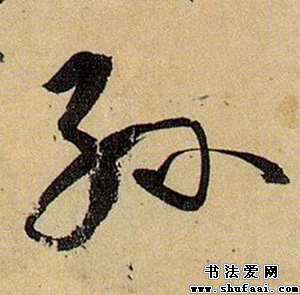 孙
书法爱网
www.shufaai.com